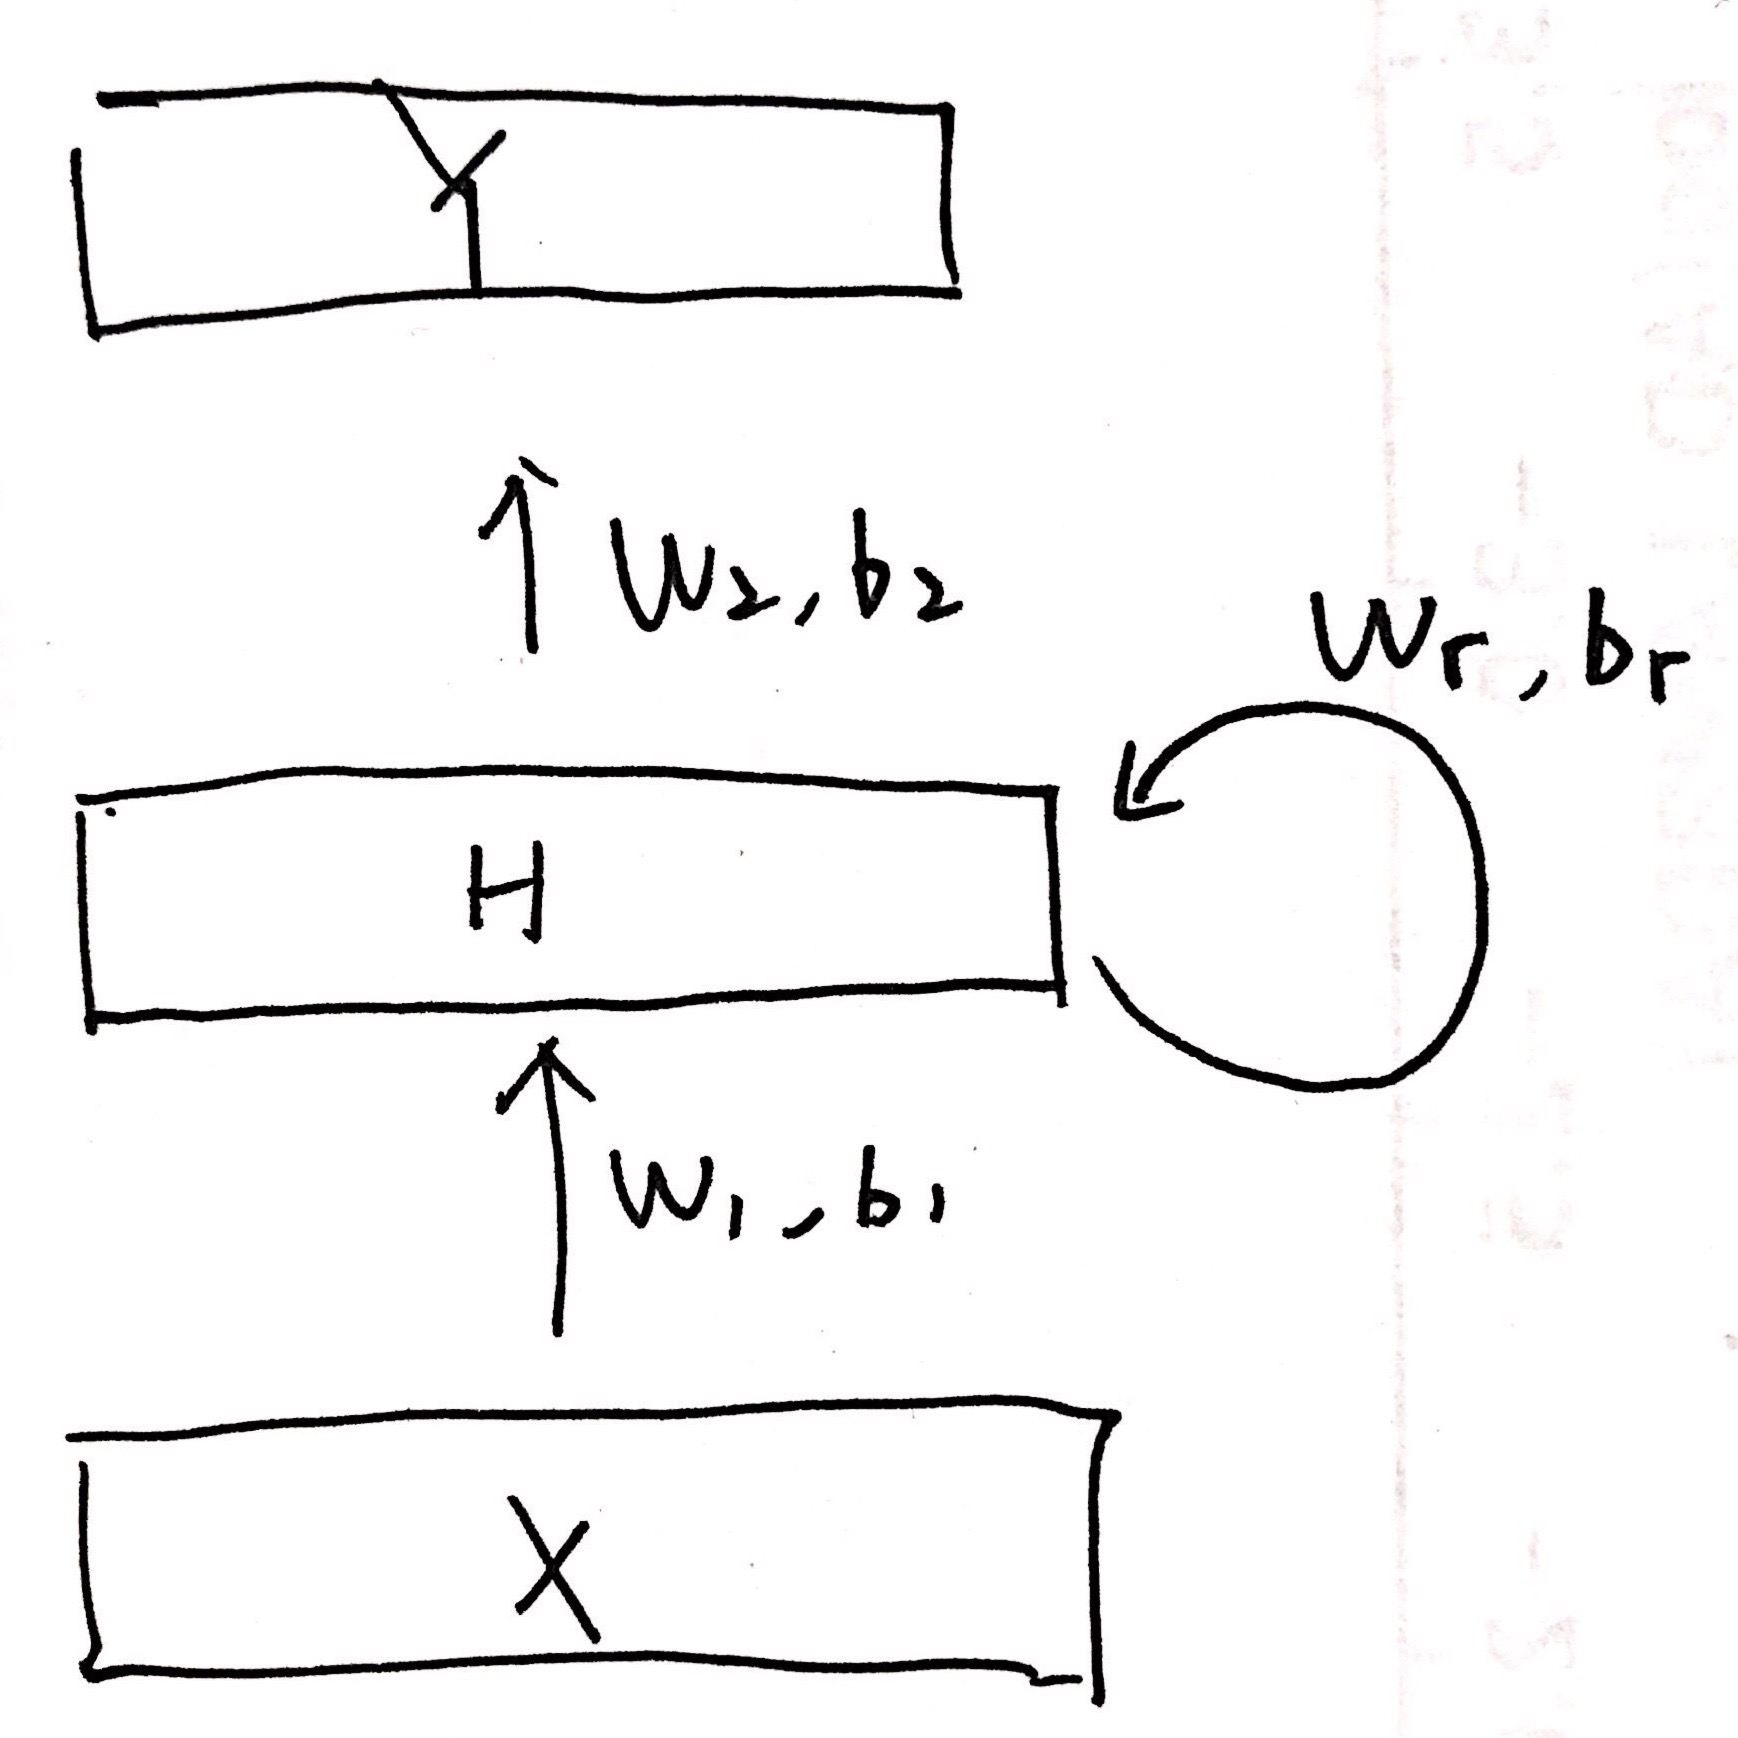 Y
W2, b2
Wr, br
H
W1, b1
X